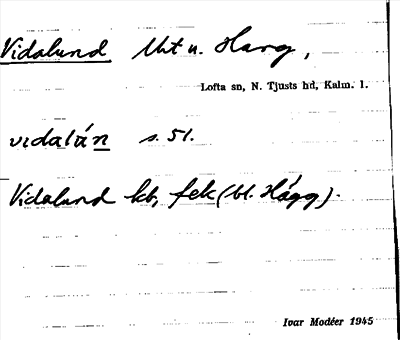 Vidalund Utt u. Harg,
Lofta sn, N. Tjusts hd, Kalm. l.
vidalán s. 51.
Vidalund kb, fek (bl. Hägg).
Ivar Modéer 1945